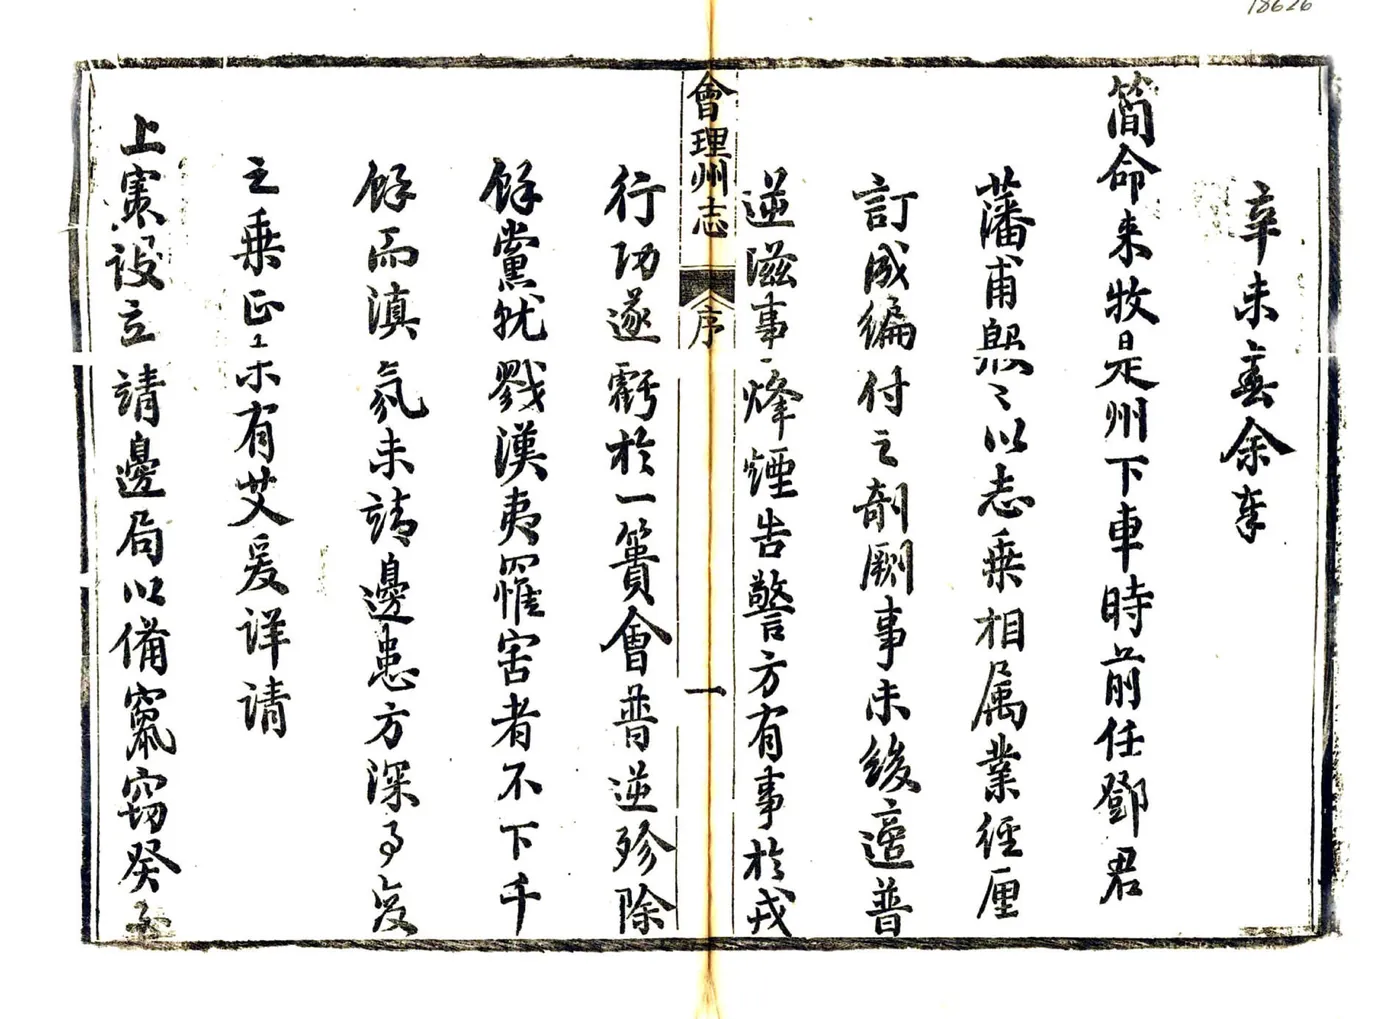 18626
辛未春余奉
簡命来牧是州下車時前任鄧君
藩甫慇〻以志乗相属業經厘
訂成編付之剞劂事未竣適普
逆滋事烽煙告警方有事於戎
會理州志
序
一
行功遂虧於一簣會普逆殄除
餘黨就戮漢夷罹害者不下千
餘而滇氛未靖邊患方深
之乗正未有艾爰详请
上憲設立請邊局以備竄竊癸